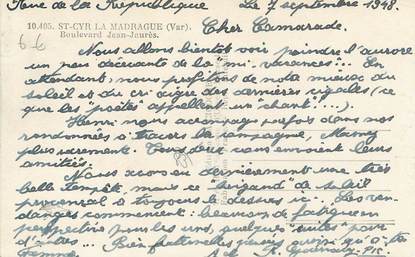 Rue de la République Le 7 septembre 1948.
10.405. ST-CYR LA MADRAGUE (Var).
Boulevard Jean-Jaurès.
6-6
Cher Camarade.
Nous allons bientôt voir poindre l'aurore
un peu décevante de la "mi-vacances"... En
attendant, nous profitons de notre mieux du
soleil et du cri aigre des dernières cigales (ce
que les "poètes" appellent un "chant"...).
Henri nous accompagne parfois dans nos
randonnées à travers la campagne,
plus rarement. Tous deux vous envoient leurs
amitiés.
Nous avons eu dernièrement une très
belle tempête, mais ce "brigand" de soleil
provençal a toujours le dessus ici... Les ven-
danges commencent: beaucoup de fatigue en
perspective pour les uns, quelques pour
d'autres... Bien fraternelles pensées ainsi qu'à ta
femme.